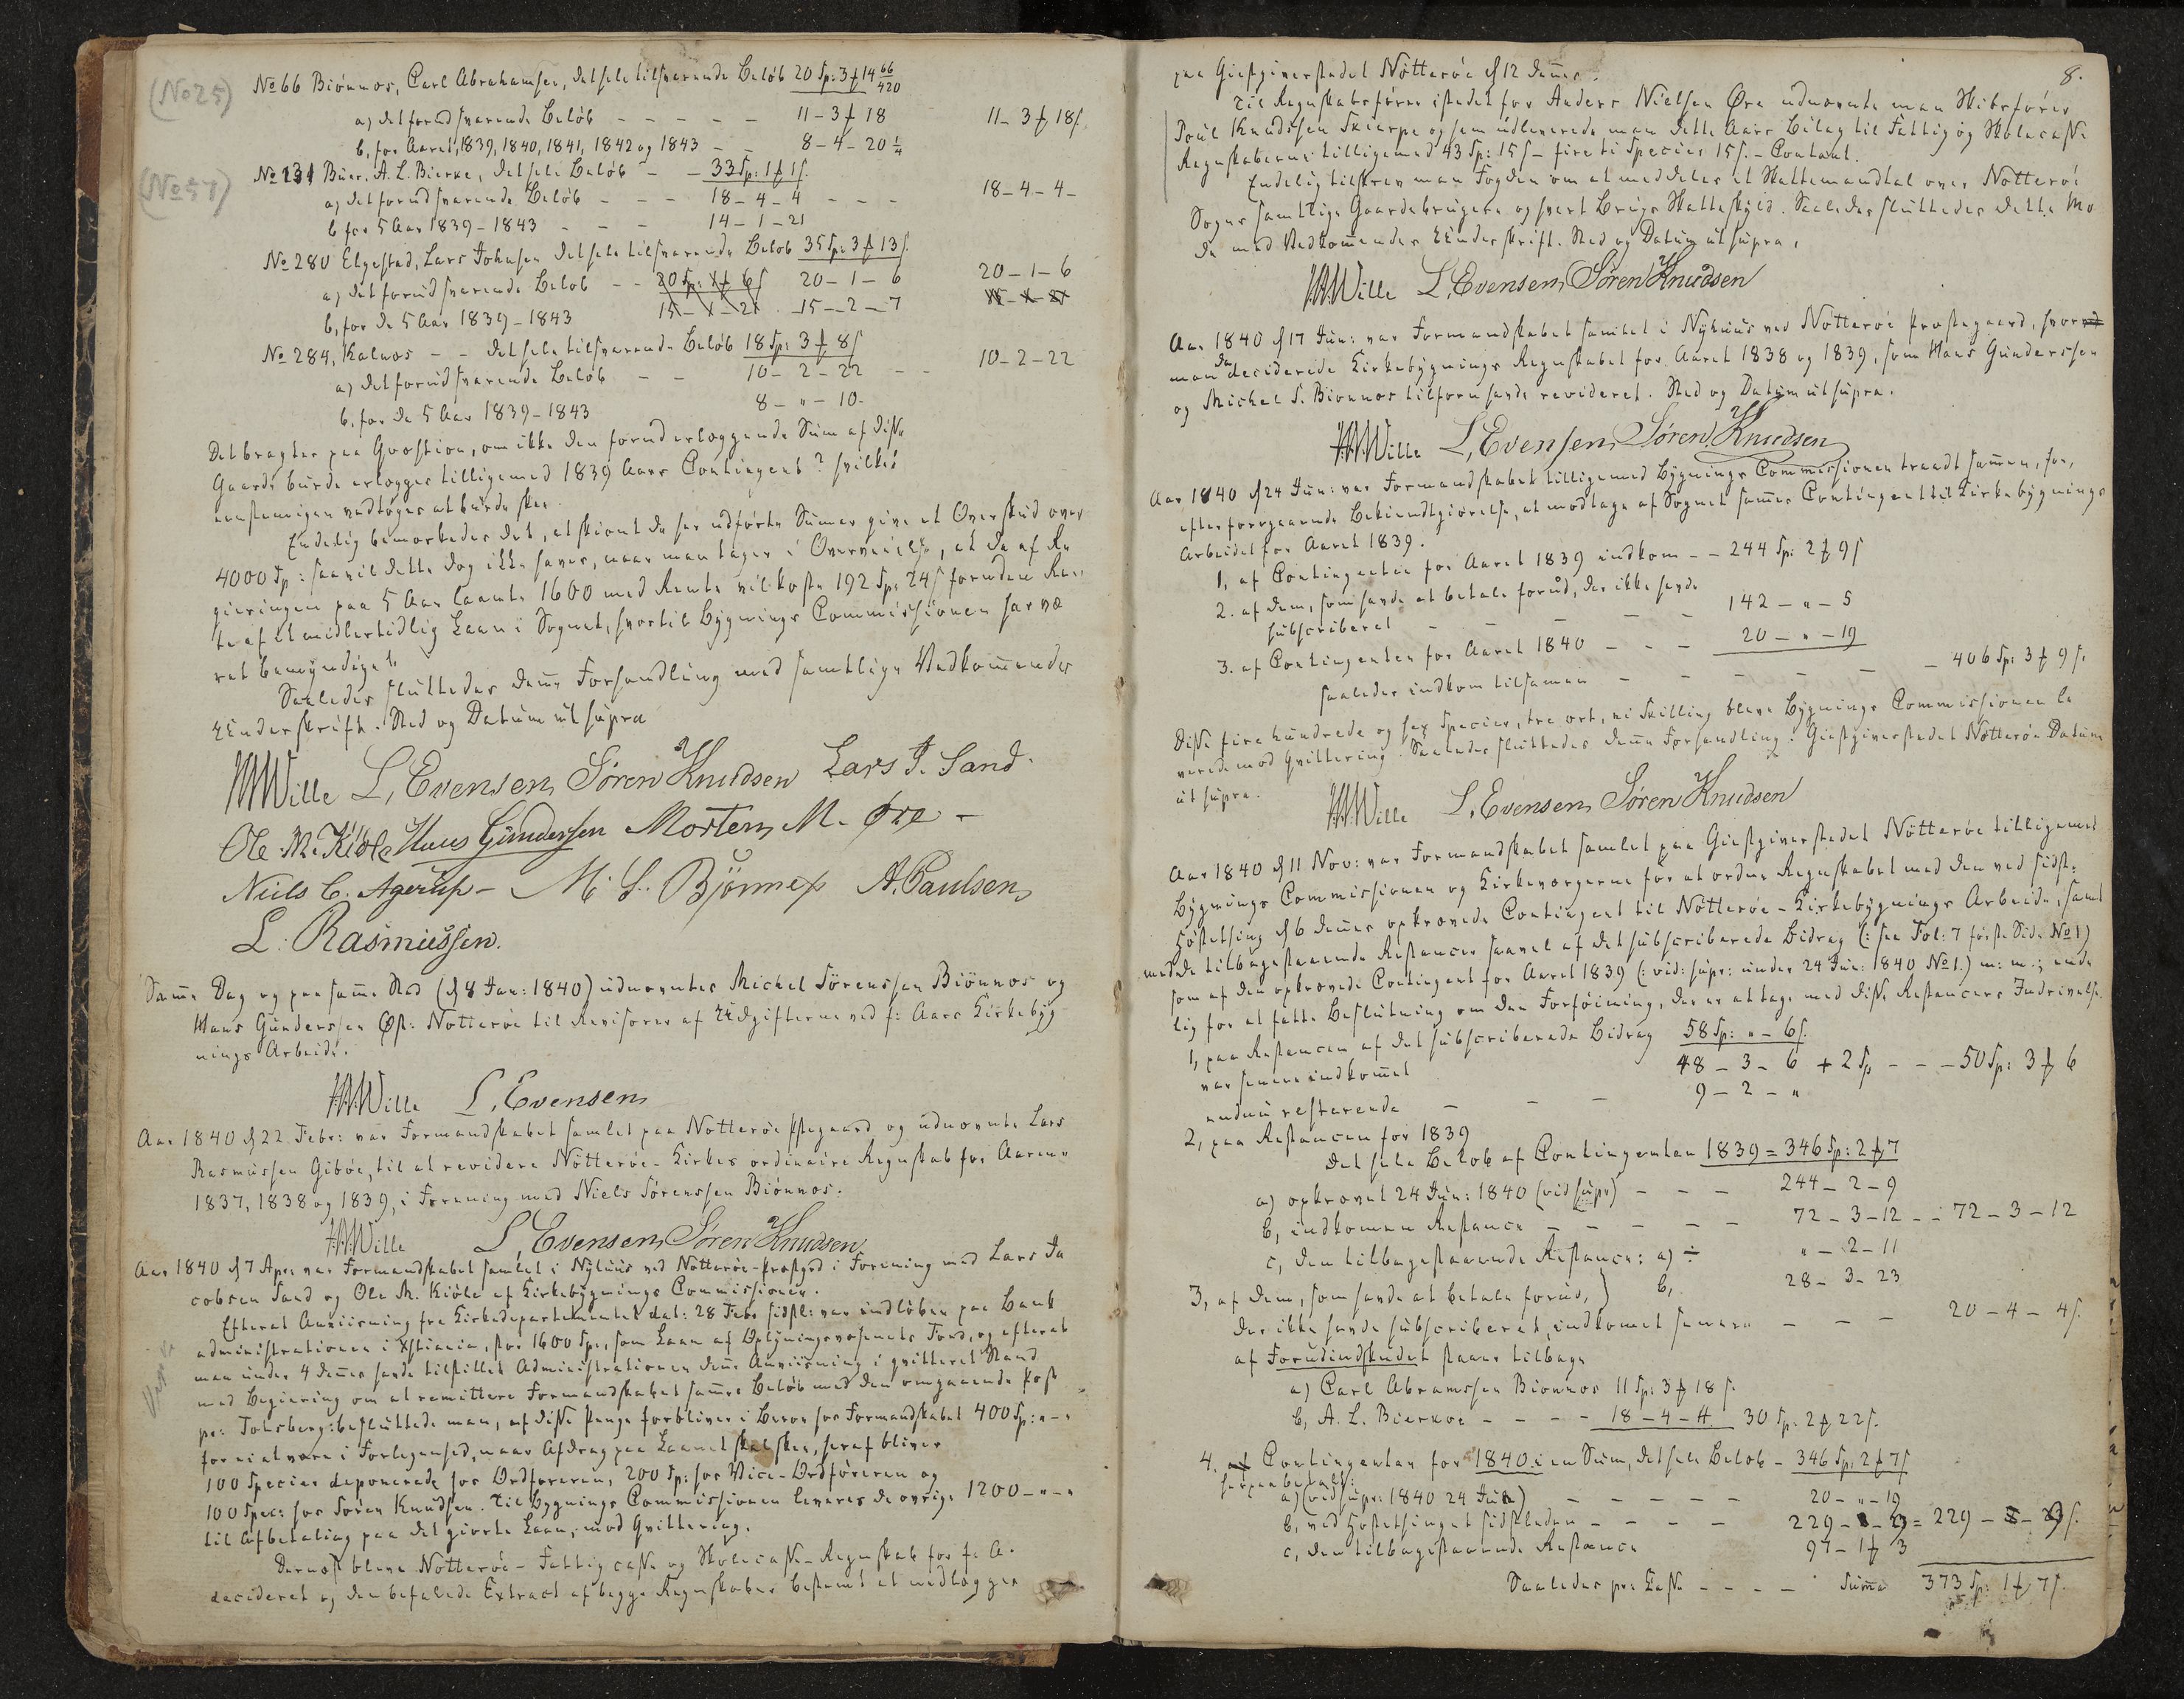 (No 25)
No 66 Biönnes, Carl Abrahamsen, det hele tilsvarende Beløb 20 Sp: 3 ƒ 14 66/420
a) det forud svarende Beløb - - - - - 11 - 3 ƒ 18 11 - 3 ƒ 18 s.
b, for Aaret, 1839, 1840, 1841, 1842 og 1843 - - 8 - 4 - 20 1/4
(No 57)
No 131 Buer, A. L. Bierke, det hele Beløb - - 33 Sp: 1 ƒ 1 s.
a) det forud svarende Beløb - - - 18 - 4 - 4 - - - 18 - 4 - 4 -
b for 5 Aar 1839 - 1843 - - - 14 - 1 - 21
No 280 Elgestad, Lars Johnsen det hele tilsvarende Beløb 35 Sp: 3 ƒ 13 s.
a) det forud svarende Beløb - - 20 Sp: 1 ƒ 6 s 20 - 1 - 6 20 - 1 - 6
b, for de 5 Aar 1839 - 1843 15 - 1 - 21 15 - 2 - 7
No 284, Kalnes - - det hele tilsvarende Beløb 18 Sp: 3 ƒ 8 s
a) det forud svarende Beløb - - 10 - 2 - 22 - - 10 - 2 - 22
b, for de 5 Aar 1839 - 1843 8 - " - 10
Det bragtes paa Qvæstion, om ikke den forud erlæggende Sum af disse
Gaarde burde erlægges tilligemed 1839 Aars Contingent? hvilket
eenstemigen vedtoges at burde skee.
Endelig bemærkedes det, at skiønt de her udførte Sumer give et Overskud over
4000 Sp: saa vil dette dog ikke haves, naar man tager i Overveielse, at de af Re
gieringen paa 5 Aar laante 1600 med Rente vil koste 192 Sp: 24 s foruden Ren
te af et midlertidlig Laan i Sognet, hvortil Bygnings Commissionen har væ
ret bemyndiget.
Saaledes sluttedes denne Forhandling med samtlige Vedkommendes
Underskrift. Sted og Datum ut supra
HWille L, Evensen, Søren Knudsen Lars J. Sand.
Ole M. Kiøle Hans Gundersen Morten M. Øre -
Niels C. Agerup - M. S. Bjönnes A. Paulsen,
L. Rasmussen.
Samme Dag og paa samme Sted (d 8 Jan: 1840) udnævntes Michel Sörenssen Biönnes og
Hans Gunderssen Øst: Nötteröe til Revisorer af Udgifterne ved f: Aars Kirkebyg
nings Arbeide.
HWille L, Evensen,
Aar 1840 d 22 Febr: var Formandskabet samlet paa Nötteröe Pstegaard og udnævnte Lars
Rasmussen Giböe, til at revidere Nötteröe-Kirkes ordinaire Regnskab for Aarene
1837, 1838 og 1839, i Forening med Niels Sörenssen Biönnes.
HWille L, Evensen, Søren Knudsen
Aar 1840 d 7 Apr: var Formandskabet samlet i Nyhuus ved Nötteröe-Prstgrd i Forening med Lars Ja
cobsen Sand og Ole M. Kiöle af Kirkebygnings Commissionen.
Efterat Anviisning fra Kirkedepartementet dat: 28 Febr sidstl: var indløben paa Bank
administrationen i Xstiania, stor 1600 Sp:, som Laan af Oplysningsvæsenets Fond, og efterat
man under 4 dennes havde tilstillet Administrationen denne Anviisning i qvitteret Stand
med Begiering om at remittere Formandskabet samme Beløb med den omgaaende Post
pr: Tønsberg: besluttede man, af disse Penge forbliver i Bero hos Formandskabet 400 Sp: " - "
for ei at være i Forlegenhed, naar Afdrag paa Laanet skal skee, heraf bliver
100 Species deponerede hos Ordføreren, 200 Sp: hos Vice-Ordföreren og
100 Spec: hos Sören Knudsen. Til Bygnings Commissionen leveres de øvrige 1200 - " - "
til Afbetaling paa det giorte Laan, mod Qvittering.
Dernæst bleve Nötteröe-Fattigcasse og Skolecasse-Regnskab for f: A.
decideret og den befalede Extract af begge Regnskaber bestemt at nedlægges
8.
paa Giestgiverstedet Nötteröe d 12 dennes.
Til Regnskabsfører istedet for Anders Nielsen Øre udnævnte man Skibsfører
Poul Knudssen Skierpe og sem udleverede man dette Aars Bilag til Fattig og Skolecasse
Regnskaberne tilligemed 43 Sp: 15 s - fireti Species 15 s. - Contant.
Endelig tilskrev man Fogden om at meddeles et Skattemandtal over Nötteröe
Sogns samtlige Gaardebrugere og hvert Brugs Skatteskyld. Saaledes sluttedes dette Mø
de med Vedkommendes Underskrift. Sted og Datum ut supra.
HWille L, Evensen, Søren Knudsen
Aar 1840 d 17 Jun: var Formandskabet samlet i Nyhuus ved Nötteröe Prestegaard, hvor
man da deciderede Kirkebygnings Regnskabet for Aaret 1838 og 1839, som Hans Gunderssen
og Michel S. Biönnes tilforn havde revideret. Sted og Datum ut supra.
HWille L, Evensen, Søren Knudsen
Aar 1840 d 24 Jun: var Formandskabet tilligemed Bygnings Commissionen traadt sammen, for,
efter foregaaende Bekiendtgiørelse, at modtage af Sognet sammes Contingent til Kirkebygnings
Arbeidet for Aaret 1839.
1, af Contingenten for Aaret 1839 indkom - - 244 Sp: 2 ƒ 9 s
2. af dem, som havde at betale forud, der ikke havde
subscriberet - - - - - 142 - " - 5
3. af Contingenten for Aaret 1840 - - - 20 - " - 19
saaledes indkom tilsamen - - - - - - 406 Sp: 3 ƒ 9 s.
Disse fire hundrede og sex Species, tre ort, ni Skilling bleve Bygnings Commissionen le
verede mod Qvittering. Saaledes sluttedes denne Forhandling. Giestgiverstedet Nötteröe Datum
ut supra.
HWille L, Evensen, Søren Knudsen
Aar 1840 d 11 Nov: var Formandskabet samlet paa Giestgiverstedet Nötteröe tilligemed
Bygnings Commissionen og Kirkeværgerne for at ordne Regnskabet med den ved sidst:
Høstthing d 6 dennes opkrævede Contingent til Nötteröe-Kirkebygnings Arbeide, samt
med de tilbagestaaende Restancer saavel af det subscriberede Bidrag (: see Fol: 7 første Side No 1)
som af den opkrævede Contingent for Aaret 1839 (: vid: supr: under 24 Jun: 1840 No 1.) m: m:; ende
lig for at fatte Beslutning om den Forføining, der er at tage med disse Restancers Inddrivelse.
1, paa Restancen af det subscriberede Bidrag 58 Sp: " - 6 s.
var senere indkommet 48 - 3 - 6 + 2 Sp - - - 50 Sp: 3 ƒ 6
endnu resterende - - - 9 - 2 - "
2, paa Restancen for 1839
det hele Beløb af Contingenten 1839 = 346 Sp: 2 ƒ 7
a) opkrævet 24 Jun: 1840 (vid supr) - - - 244 - 2 - 9
b, indkomen Restance - - - - - 72 - 3 - 12 - - 72 - 3 - 12
c, den tilbagestaaende Restance: a) ÷ " - 2 - 11
b, 28 - 3 - 23
3, af dem, som havde at betale forud,
der ikke havde subscriberet, indkomet senere - - - 20 - 4 - 4 s.
af Forudindskudet staaer tilbage
a) Carl Abramssen Biönnes 11 Sp: 3 ƒ 18 s.
b, A. L. Bierkoe - - - - 18 - 4 - 4. 30 Sp: 2 ƒ 22 s.
4. af Contingenten for 1840: i en Sum, det hele Beløb - 346 Sp: 2 ƒ 7 s
herpaa betalt:
a) (vid supr: 1840 24 Jun) - - - - - 20 - " - 19
b, ved Høstthinget sidstleden - - - - 229 - = 229 -
c, den tilbagestaaende Restance 97 - 1 ƒ 3
Saaledes pr: Casse - - - - Suma 373 Sp: 1 ƒ 7 s.